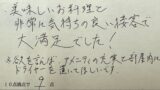 美味しいお料理と
非常に気持ちの良い接客で
大満足でした!
※欲を言えば、アメニティの充実と部屋内に
ドライヤーを置いてほしいです。
10点満点中 点